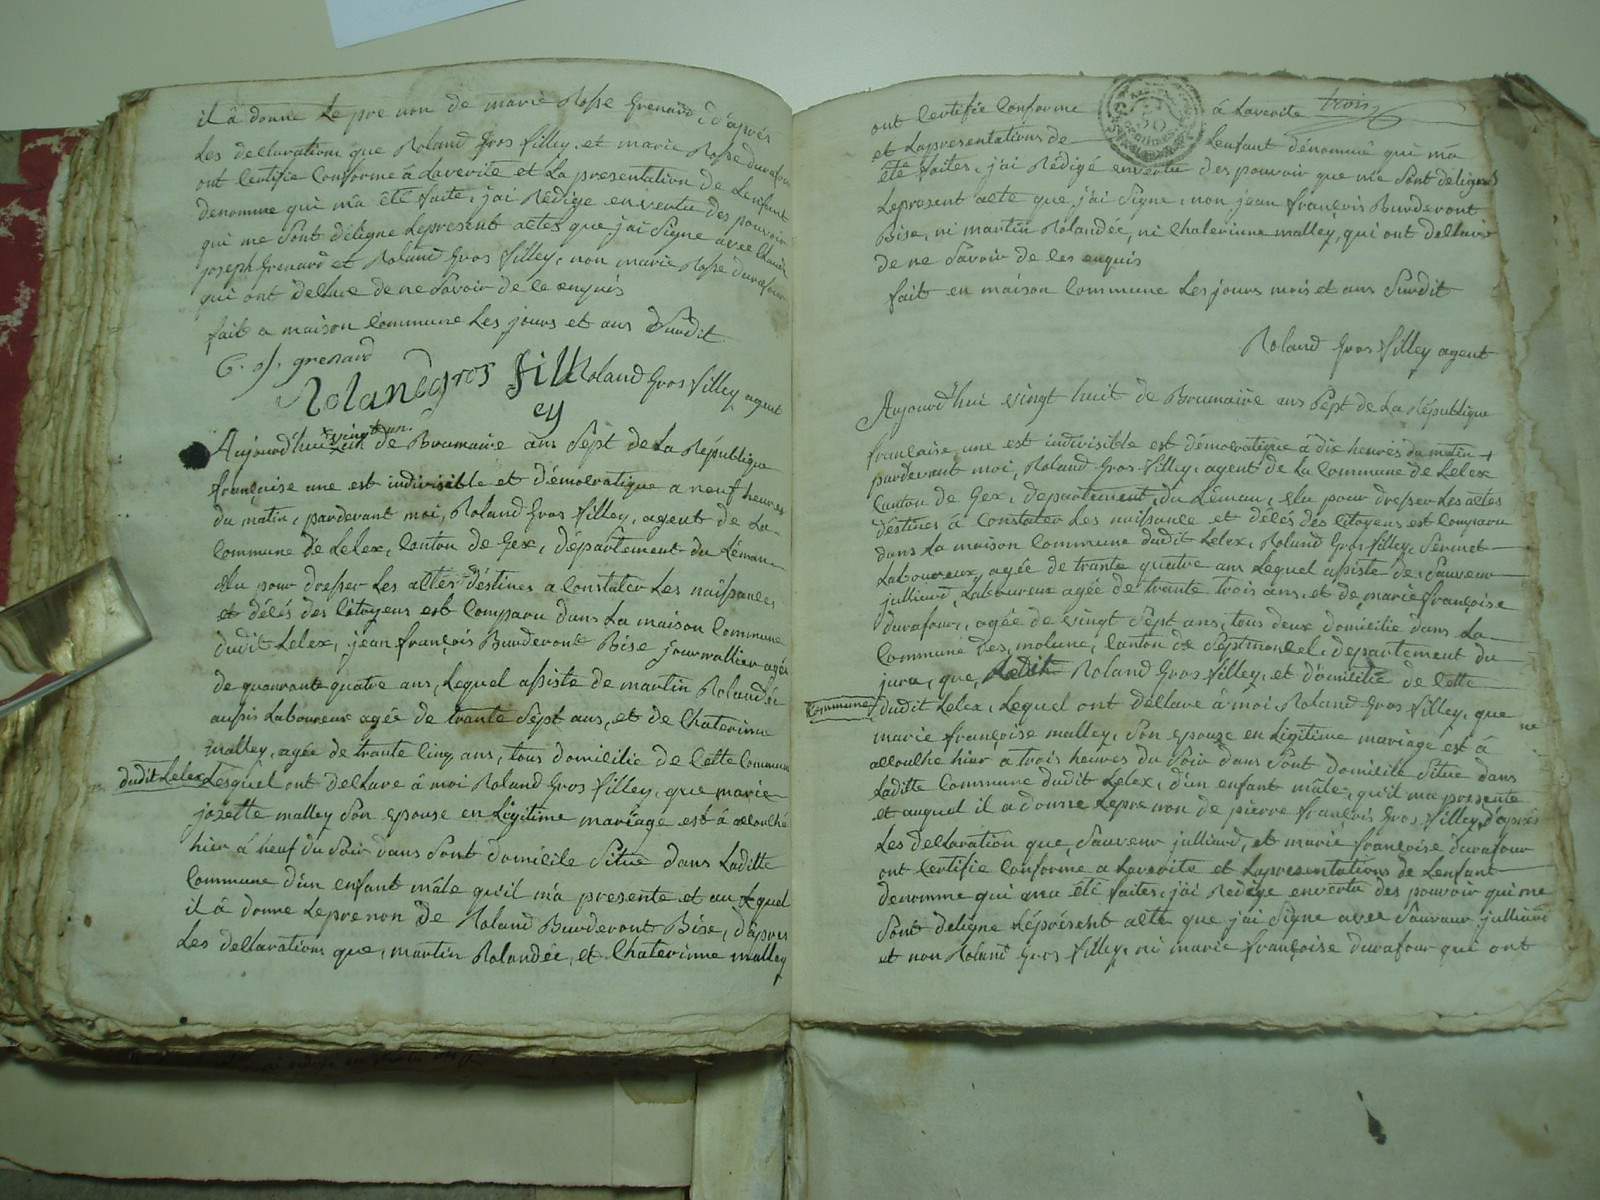 il â donne Le pre non de marie Rosse Grenard, d'aprés
Les declarations que Roland Gros filley, et marie Rosse durafour
ont Certifie Conforme â Laverite et La presentation de L'enfant
denomme qui m'a êté faite, j'ai Rédige envertu des pouvoir
qui me Sont déligne Lepresent actes que j'ai Signe avec Claude
joseph Grenard et Roland Gros filley, non marie Rosse durafour
qui ont declare de ne Savoir de ce enquis
fait a maison Commune Les jours et ans Surdit
C. j. grenard
Rolandgros fill
ey
Roland Gros filley agent
Aujourd'hui vingt un de Brumaire ans Sept de La République
francaise une est indivisible et démocratique a neuf heures
du matin, pardevant moi, Roland Gros filley, agent de La
Commune de Lelex, Canton de Gex, département du Léman
elu pour dresser Les actes déstines a Constater Les naissances
et décés des Citoyens est Comparu dans La maison Commune
dudit Lelex, jean françois Burderont Bise journallier agée
de quarante quatre ans, Lequel assiste de martin Rolandée
aussis Laboureur agée de trante Sept ans, et de Chaterinne
malley, agée de trante Cinq ans, tous domicilie de Cette Commune
dudit Lelex Lesquel ont declare â moi Roland Gros filley, que marie
josette malley Son epouse en Légitime mariage est â accouché
hier â neuf du Soir dans Sont domicile Situe dans Laditte
Commune d'un enfant mâle qu'il m'a presente et au quel
il â donne Leprenon de Roland Burderont Bise, d'apres
Les declarations que, martin Rolandée, et Chaterinne malley
ont Certifie Conforme â Laverite trois
et Lapresentations de L'enfant dénommé qui m'a
été faites, j'ai Rédigé envertu des pouvoir que me Sont delignes
Lepresent acte que j'ai Signe, non jean françois Burderont
Bise, ni martin Rolandée, ni Chaterinne malley, qui ont declare
de ne Savoir de ces enquis
fait en maison Commune Les jours mois et ans Surdit
Roland Gros filley agent
Aujourd'hui vingt huit de Brumaire ans Sept de La République
francaise une est indivisible est démocratique â dix heures du matin
pardevant moi, Roland Gros filley, agent de La Commune de Lelex
Canton de Gex, departement du Léman, elu pour dresser Les actes
déstines â Constater Les naissance et décés des Citoyens est Comparu
dans La maison Commune dudit Lelex, Roland Gros filley
Laboureux agée de trante quatre ans Lequel assiste de Sauveur
julliard, Laboureux agée de trante trois ans, et de marie françoise
durafour, agée de vingt Sept ans, tous deux domicilie dans La
Commune des molune, Canton de Septmoncel, departement du
jura, que, Ledit Roland Gros filley, et domicilie de Cette
Commune dudit Lelex, Lequel ont déclare â moi Roland Gros filley, que
marie françoise malley, Son epouse en Légitime mariage est â
accouche hier a trois heures du Soir dans Sont domicile Situe dans
Laditte Commune dudit Lelex, d'un enfant mâle, qu'il ma presente
et auquel il a donne Leprenon de pierre françois Gros filley, d'aprés
Les declaration que Sauveur julliard, et marie françoise durafour
ont Certifie Conforme a Laverite et Lapresentations de L'enfant
denomme qui ma êté faites, j'ai Redige envertu des pouvoir qui me
Sont deligne Répresent acte que j'ai Signe avec Sauveur julliard
et non Roland Gros filley, ni marie françoise durafour qui ont